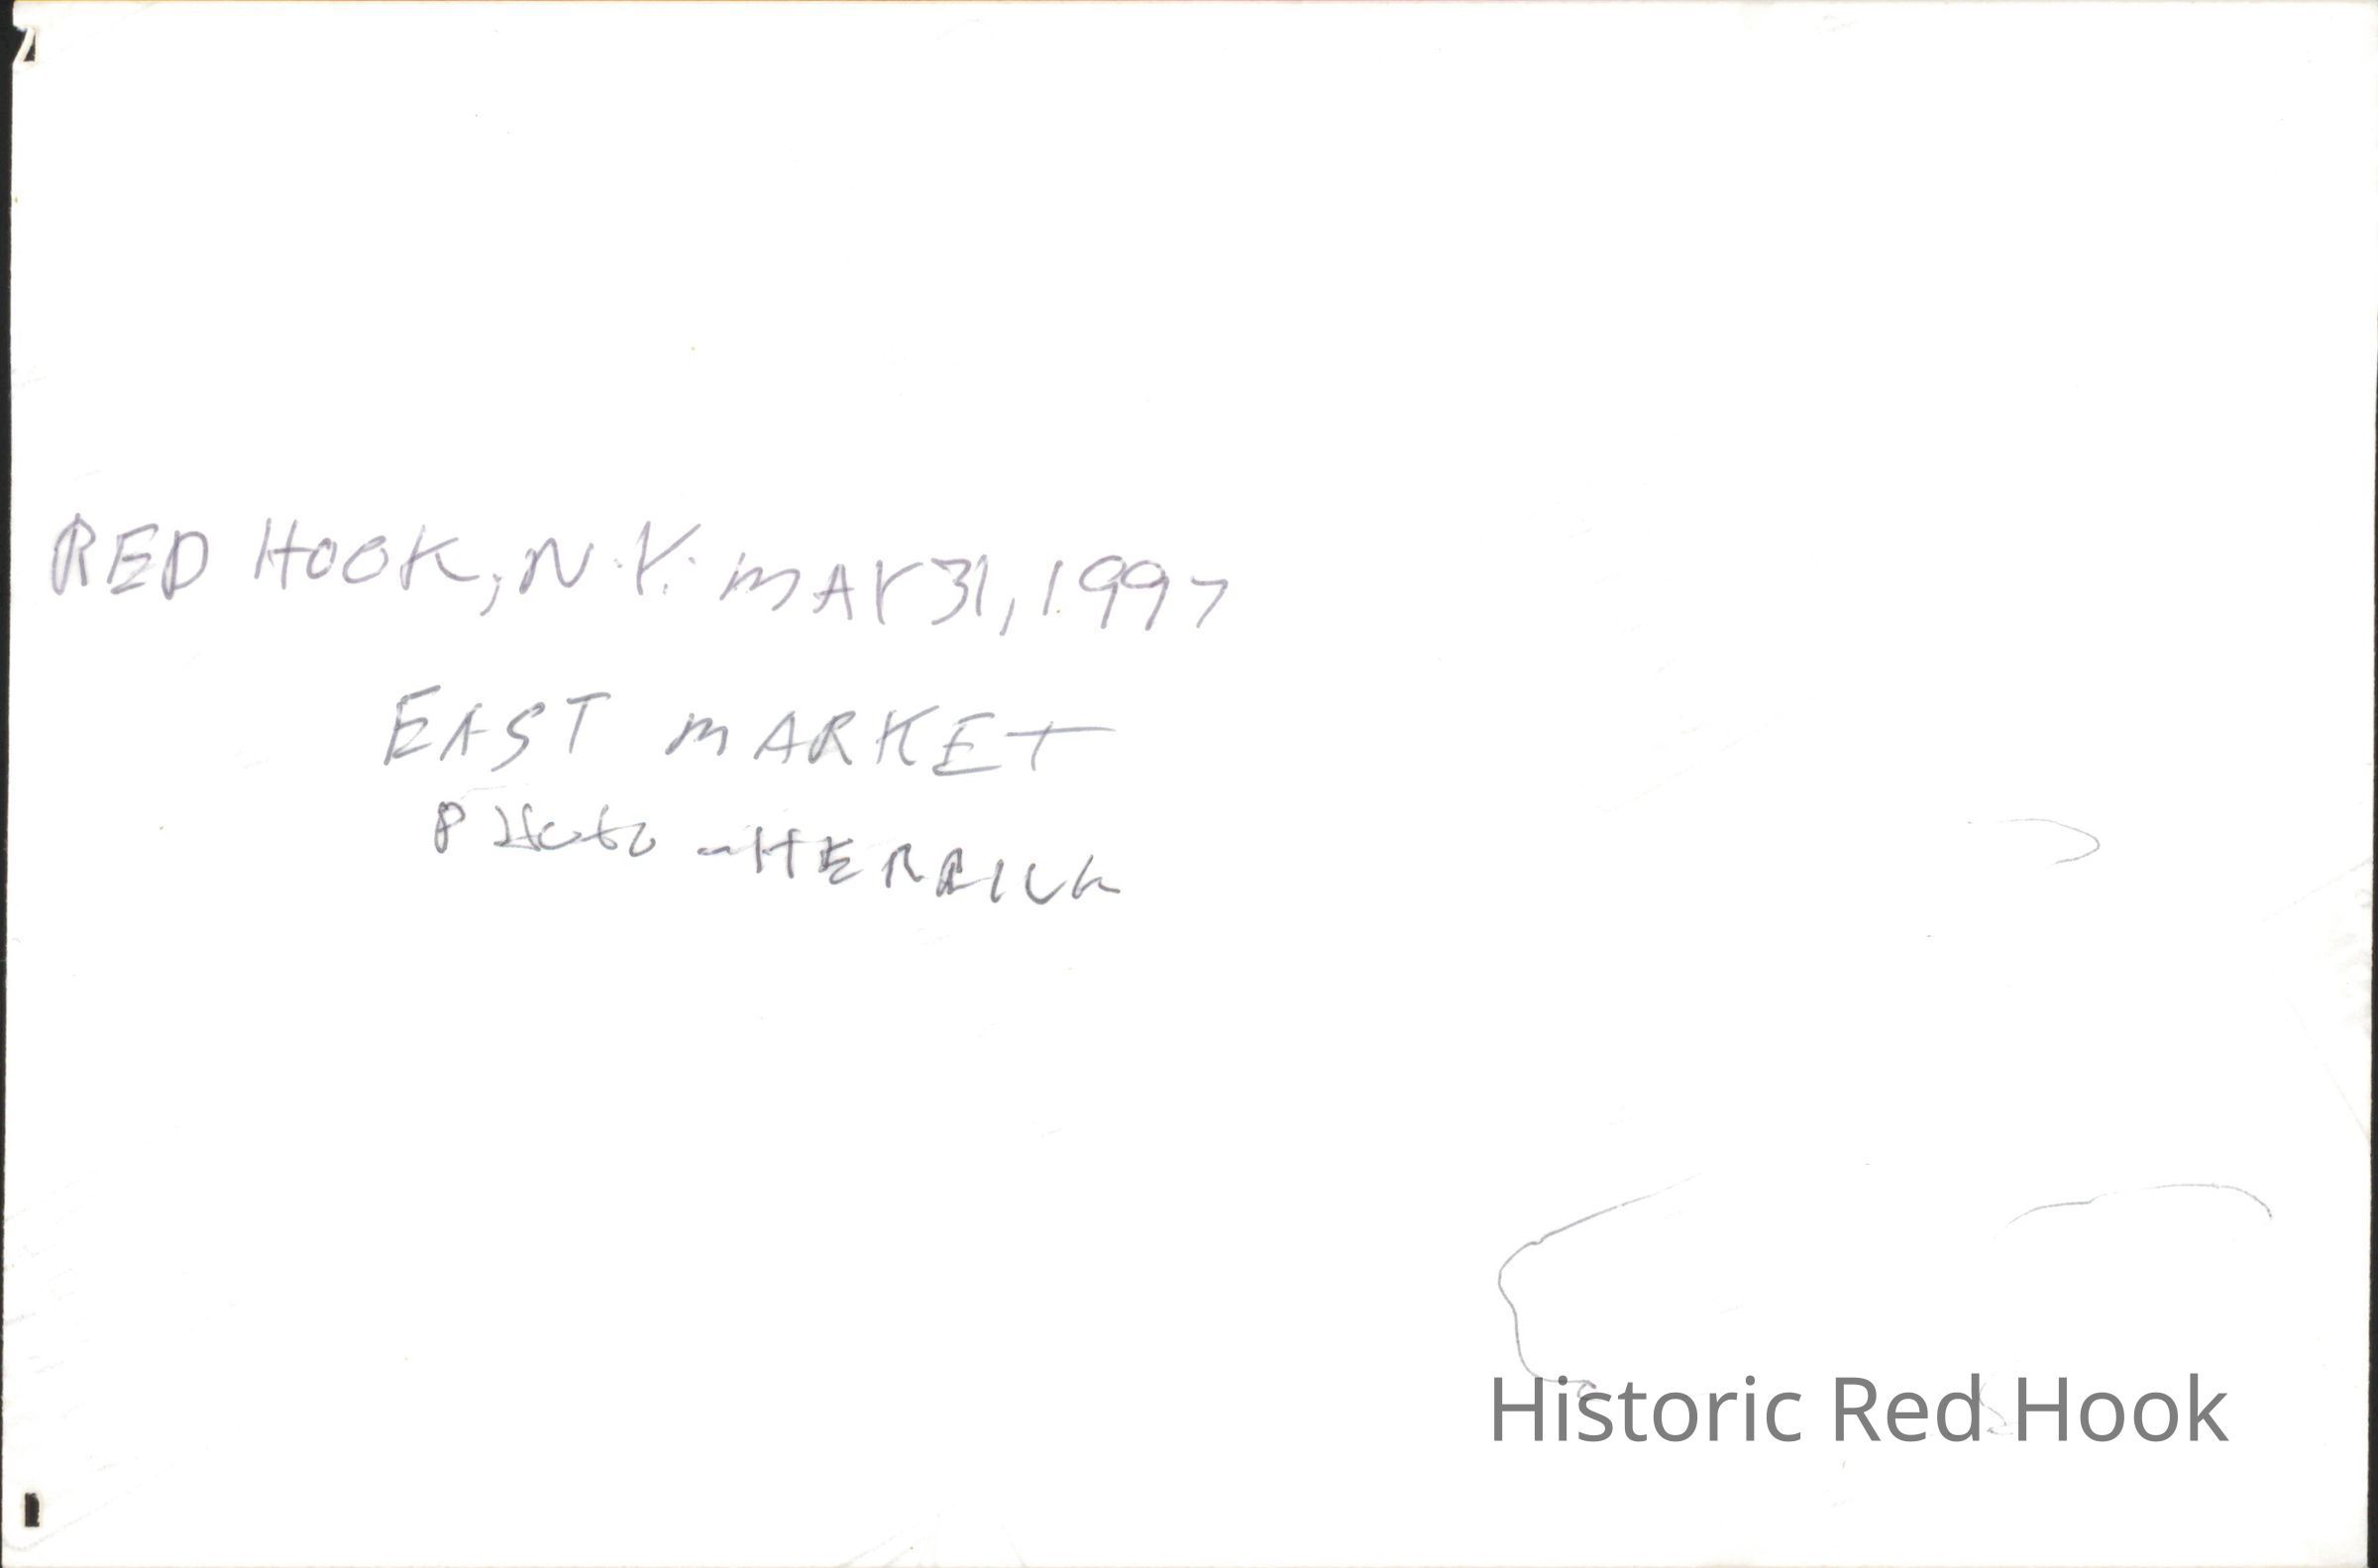 RED HOOK, N.Y. MAY 31, 1997
EAST MARKET
PHOTO - HERRICK
Historic Red Hook